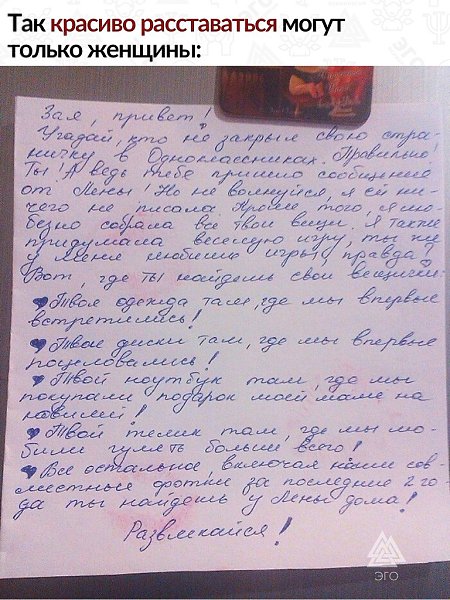 Так красиво расставаться могут
только женщины:
Зая, привет!
Угадай, кто не закрыл свою стра-
ничку в Одноклассниках. Правильно!
Ты! А ведь тебе пришло сообщение
от Лены! Но не волнуйся, я ей ни-
чего не писала. Кроме того, я лю-
безно собрала все твои вещи. Я также
придумала веселую игру, ты же
у меня любишь игры, правда?
Вот, где ты найдешь свои вещички:
Твоя одежда там, где мы впервые
встретились!
Твои диски там, где мы впервые
поцеловались!
Твой ноутбук там, где мы
покупали подарок моей маме на
юбилей!
Твой телик там, где мы лю-
били гулять больше всего!
Все остальное, включая наши сов-
местные фотки за последние 2 го-
да ты найдешь у Лены дома!
Развлекайся!
ЭГО